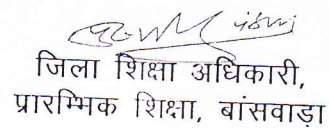 जिला शिक्षा अधिकारी,
प्रारम्भिक शिक्षा, बांसवाड़ा